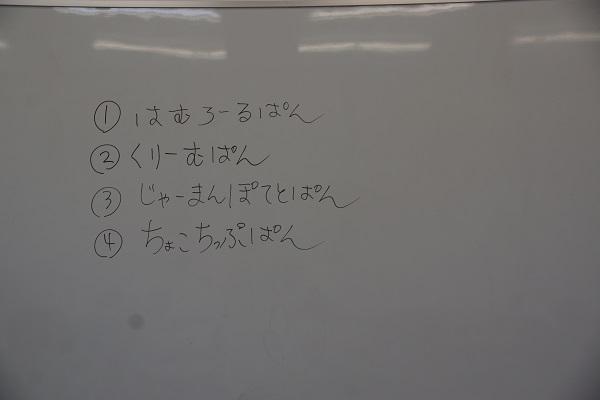 ① はむろーるぱん
② くりーむぱん
③ じゃーまんぽてとぱん
④ ちょこちっぷぱん